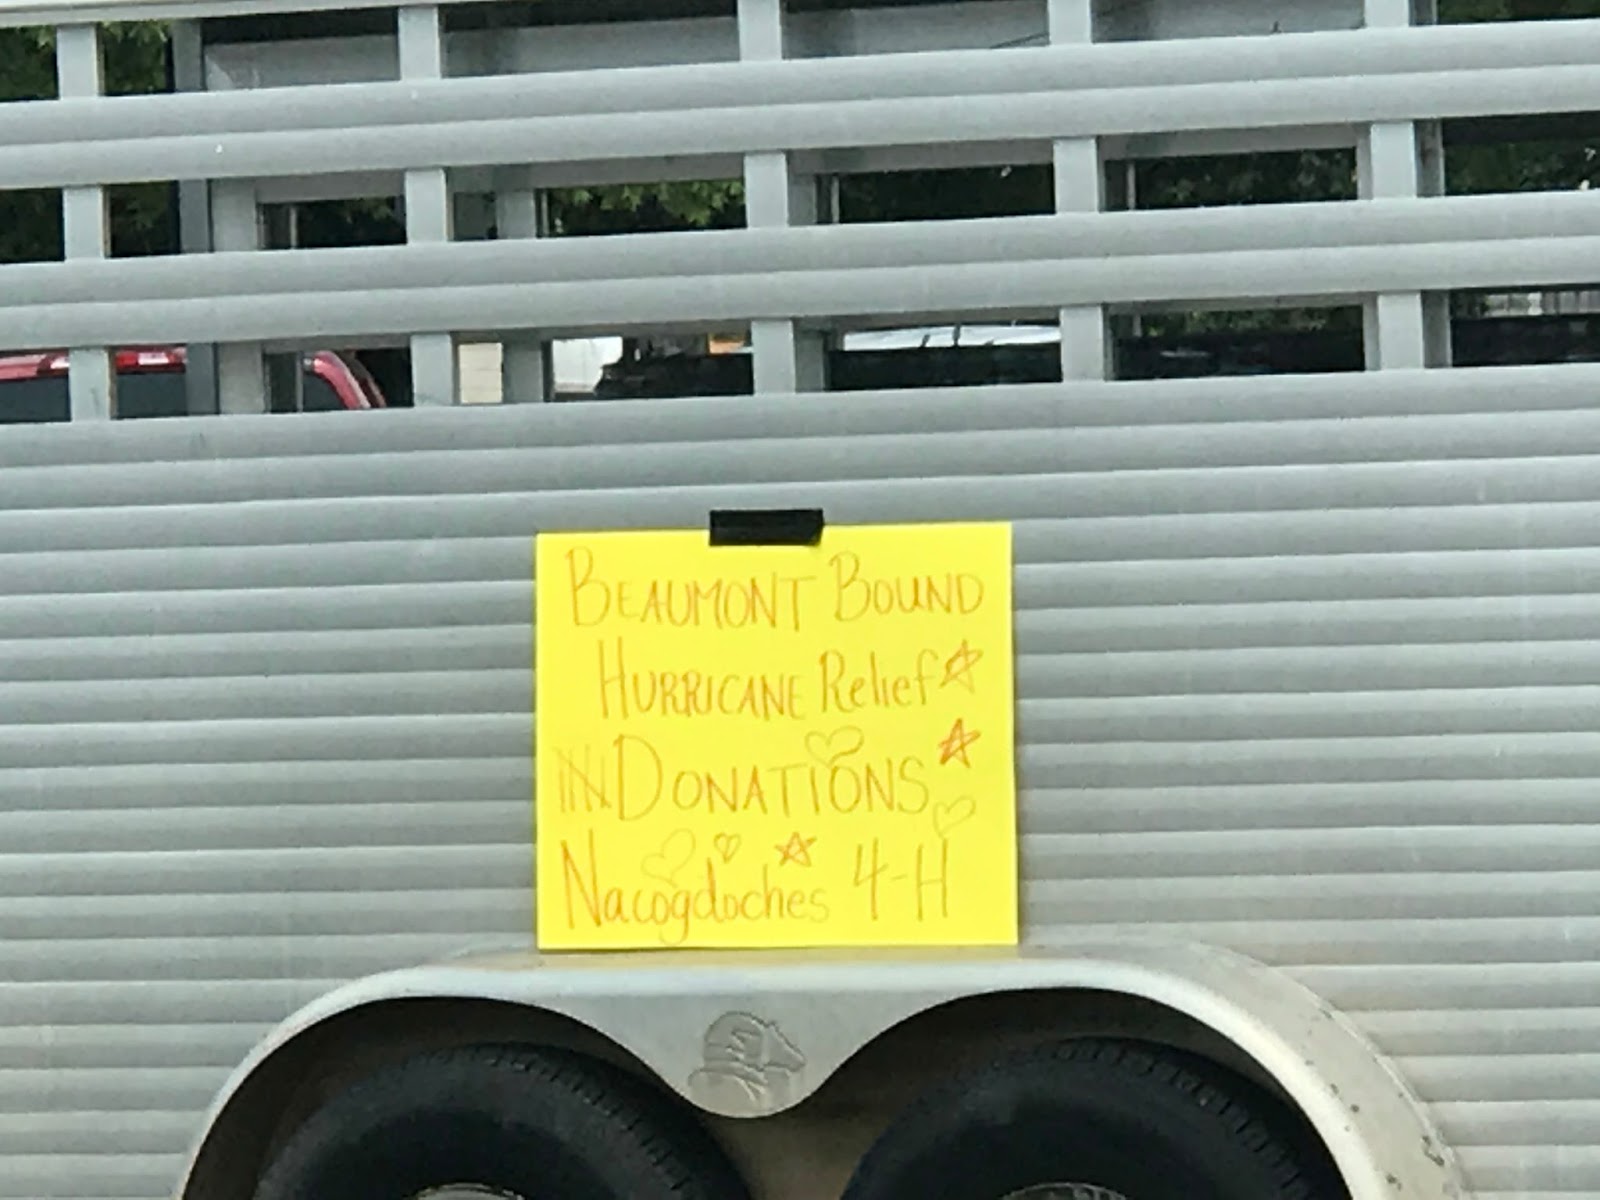 BEAUMONT BOUND
HURRICANE Relief
DONATIONS
Nacogdoches 4-H